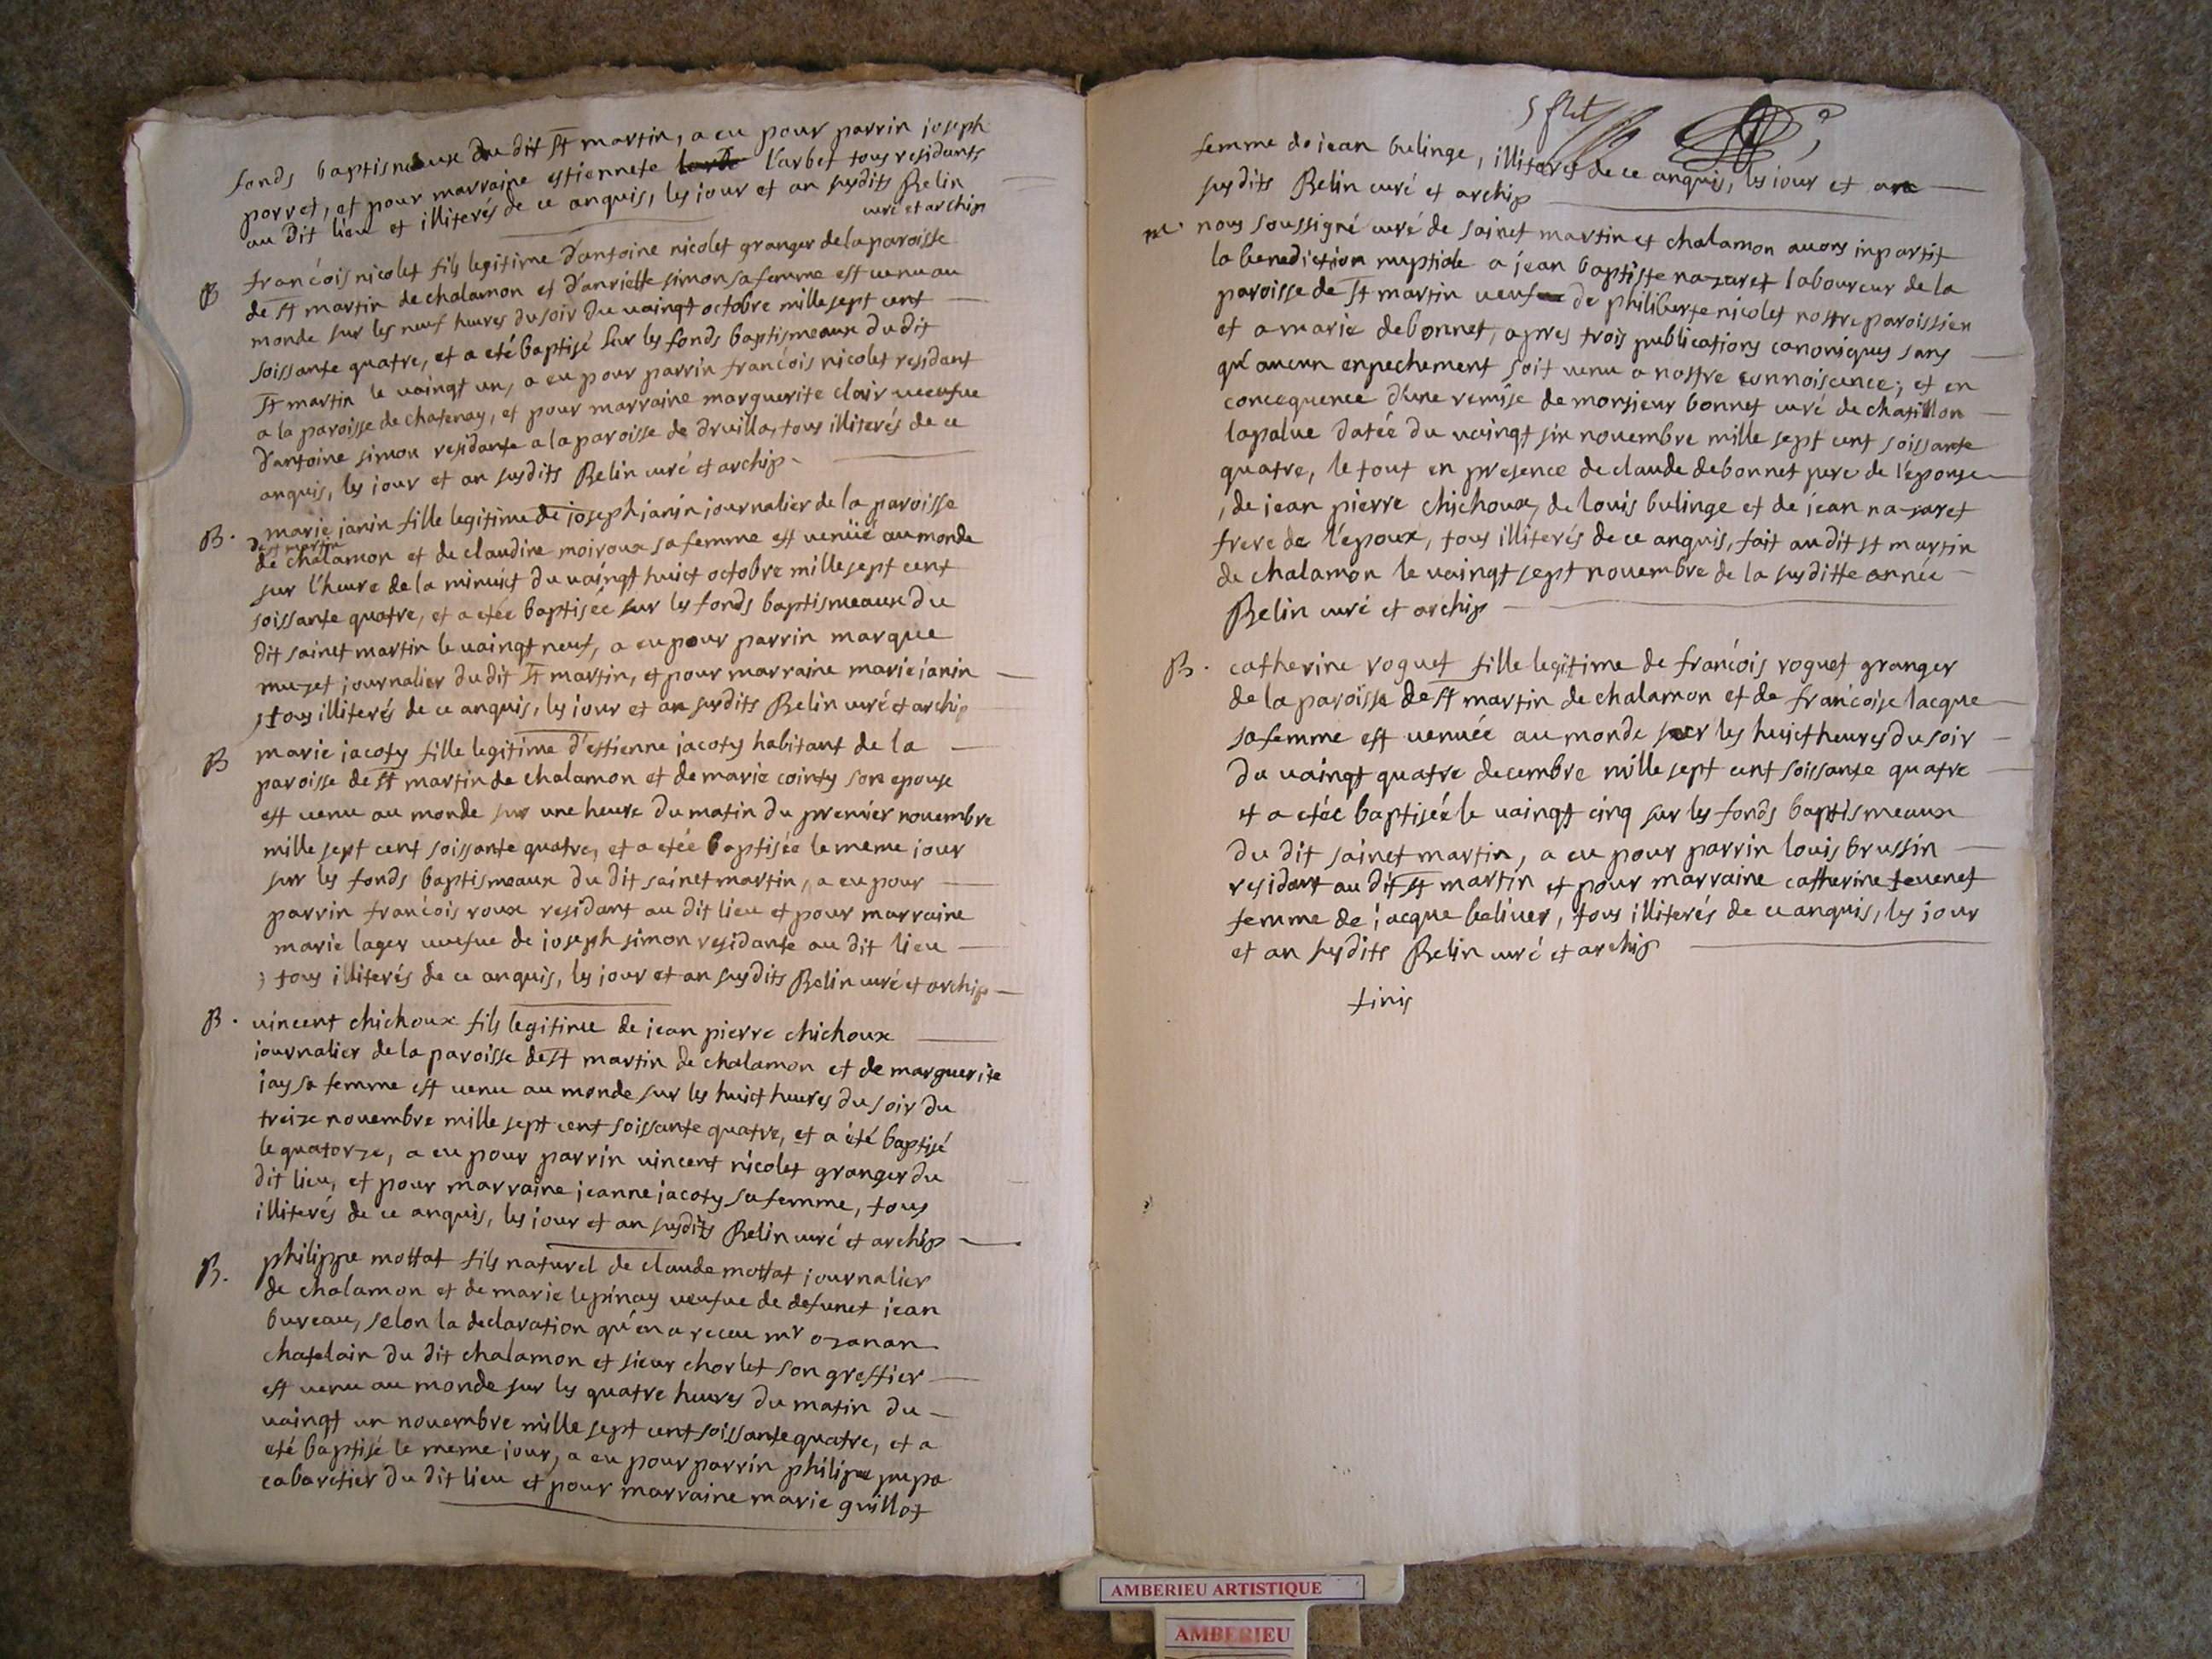 fonds baptismeaux du dit st martin, a eu pour parrin joseph
porret, et pour marraine estiennete l'arbet tous residants
au dit lieu et illiterés de ce anquis, les jour et an susdits Relin
curé et archip
B francois nicolet fils legitime d'antoine nicolet granger de la paroisse
de st martin de chalamon et d'anriette simon sa femme est venu au
monde sur les neuf heures du soir du vaingt octobre mille sept cent
soissante quatre, et a eté baptisé sur les fonds baptismeaux du dit
st martin le vaingt un, a eu pour parrin francois nicolet residant
a la paroisse de chatenay, et pour marraine marguerite clair veufve
d'antoine simon residante a la paroisse de druilla, tous illiterés de ce
anquis, les jour et an susdits Relin curé et archip
B. marie janin fille legitime de joseph janin journalier de la paroisse
de st martin
de chalamon et de claudine moiroux sa femme est venüe au monde
sur l'heure de la minuict du vaingt huict octobre mille sept cent
soissante quatre, et a etée baptisée sur les fonds baptismeaux du
dit sainct martin le vaingt neuf, a eu pour parrin marque
muzet journalier du dit st martin, et pour marraine marie janin
, tous illiterés de ce anquis, les jour et an susdits Relin curé et archip
B marie jacoty fille legitime d'estienne jacoty habitant de la
paroisse de st martin de chalamon et de marie cointy son epouse
est venu au monde sur une heure du matin du premier novembre
mille sept cent soissante quatre, et a etée baptisée le meme jour
sur les fonds baptismeaux du dit sainct martin, a eu pour
parrin francois roux residant au dit lieu et pour marraine
marie lager veufue de joseph simon residante au dit lieu
, tous illiterés de ce anquis, les jour et an susdits Relin curé et archip
B. vincent chichoux fils legitime de jean pierre chichoux
journalier de la paroisse de st martin de chalamon et de marguerite
jay sa femme est venu au monde sur les huict heures du soir du
treize novembre mille sept cent soissante quatre, et a été baptisé
le quatorze, a eu pour parrin vincent nicolet granger du
dit lieu, et pour marraine jeanne jacoty sa femme, tous
illiterés de ce anquis, les jour et an susdits Relin curé et archip
B. philippe mottat fils naturel de claude mottat journalier
de chalamon et de marie lepinay veufue de defunct jean
bureau, selon la declaration qu'en a receu mr ozanan
chatelain du dit chalamon et sieur chorlet son greffier
est venu au monde sur les quatre heures du matin du
vaingt un novembre mille sept cent soissante quatre, et a
eté baptisé le meme jour, a eu pour parrin philipe pupa
cabaretier du dit lieu et pour marraine marie guillot
femme de jean bulinge, illiterés de ce anquis, les jour et an
susdits Relin curé et archip
m nous soussigné curé de sainct martin et chalamon avons inpartit
la benediction nuptiale a jean baptiste nazaret laboureur de la
paroisse de st martin veuf de philiberte nicolet nostre paroissien
et a marie debonnet, apres trois publications canoniques sans
qu'aucun enpechement soit venu a nostre connoiscence; et en
concequence d'une remise de monsieur bonnet curé de chatillon
lapalue datée du vaingt six novembre mille sept cent soissante
quatre, le tout en presence de claude debonnet pere de l'epouse
, de jean pierre chichoux, de louis bulinge et de jean nazaret
frere de l'epoux, tous illiterés de ce anquis, fait au dit st martin
de chalamon le vaingt sept novembre de la susditte année
Relin curé et archip
B. catherine roguet fille legitime de francois roguet granger
de la paroisse de st martin de chalamon et de francoise lacque
sa femme est venuée au monde sur les huict heures du soir
du vaingt quatre decembre mille sept cent soissante quatre
et a etée baptisée le vaingt cinq sur les fonds baptismeaux
du dit sainct martin, a eu pour parrin louis brussin
residant au dit st martin et pour marraine catherine tevenet
femme de jacque baliuer, tous illiterés de ce anquis, les jour
et an susdits Relin curé et archip
finis
AMBERIEU ARTISTIQUE
AMBERIEU